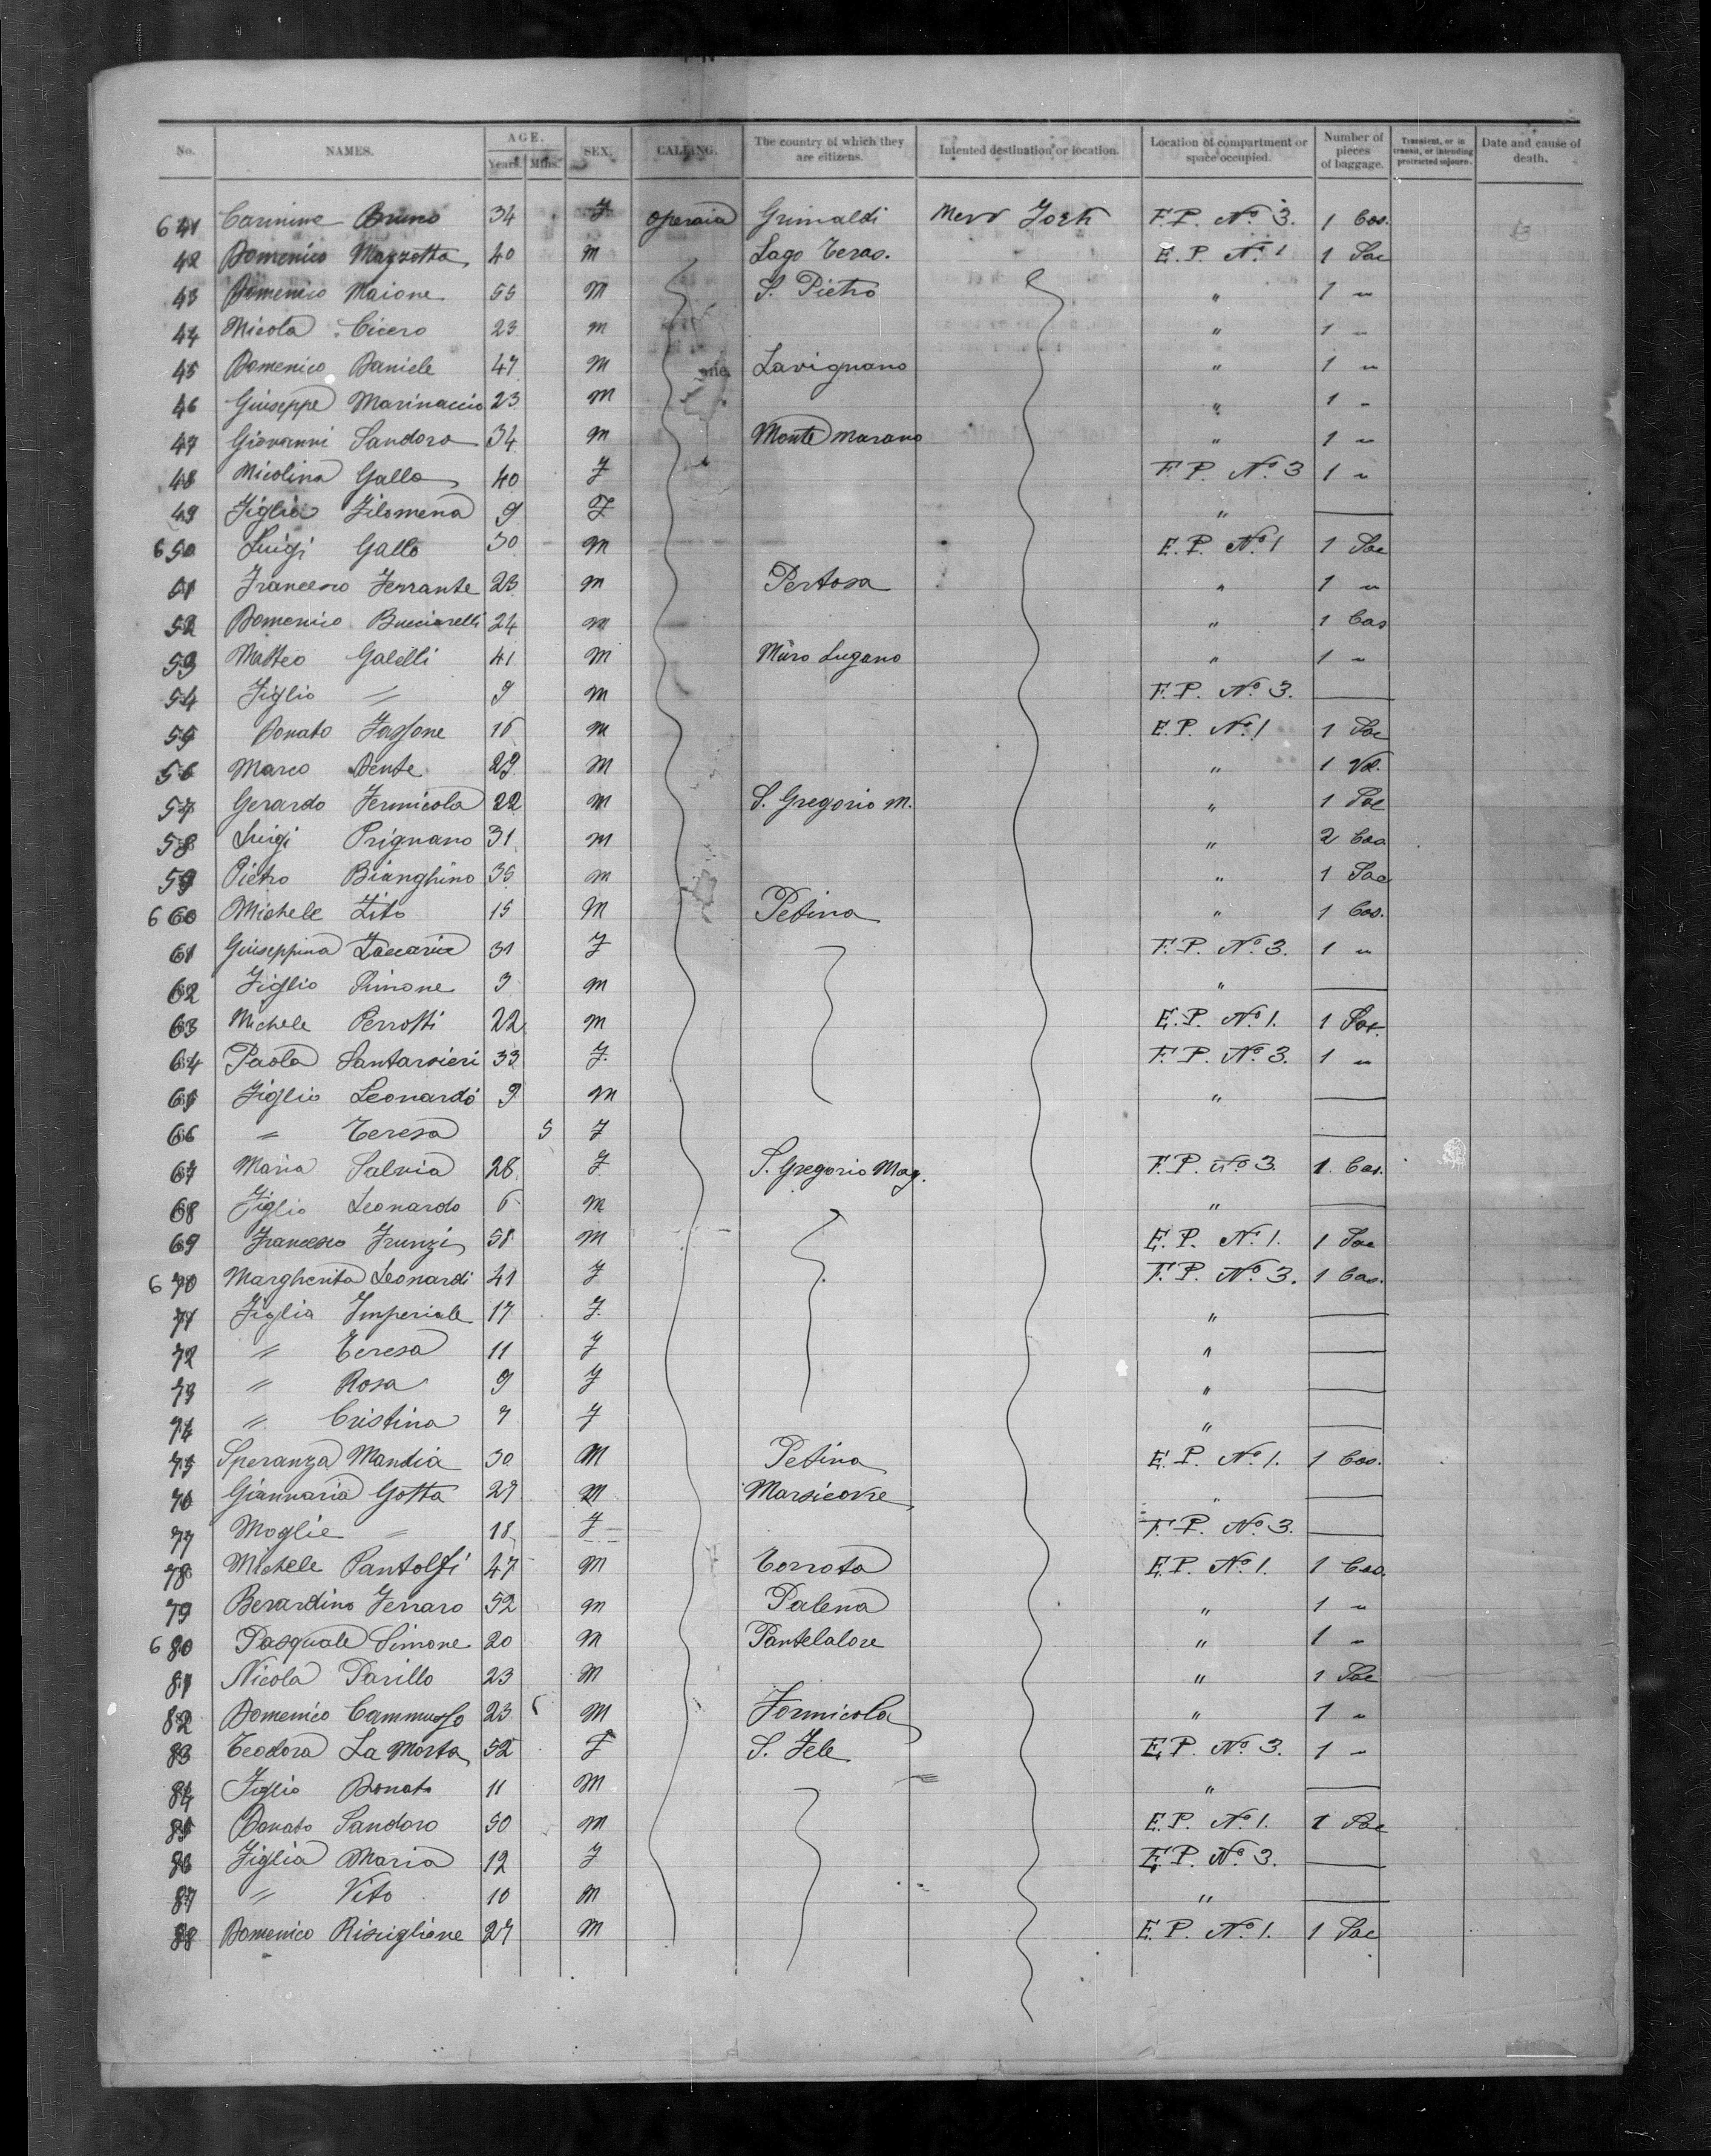 No. NAMES. AGE. Years. Mths. SEX. CALLING. The country of which they are citizens. Intented destination or location. Location of compartment or space occupied. Number of pieces of baggage. Transient, or in transit, or intending protracted sojourn. Date and cause of death.
641 Carmine Bruno 34 F operaia Grimaldi New York F.P. No. 3. 1 Cas.
42 Domenico Mazzotta 40 M Lago E.P. No. 1 1 Sac
43 Domenico Maione 55 M S. Pietro " 1 "
44 Nicola Cicero 23 M " 1 "
45 Domenico Daniele 47 M Lavignano " 1 "
46 Giuseppe Marinaccio 23 M " 1 "
47 Giovanni Sandoro 34 M Monte marano " 1 "
48 Nicolina Gallo 40 F F.P. No. 3 1 "
49 Figlia Filomena 9 F " —
650 Luigi Gallo 30 M E.P. No. 1 1 Sac
51 Francesco Ferrante 23 M Pertosa " 1 "
52 Domenico Bucciarelli 24 M " 1 Cas
53 Matteo Galelli 41 M Muro Lugano " 1 "
54 Figlio " 9 M F.P. No. 3. —
55 Donato 16 M E.P. No. 1 1 Sac
56 Marco Dente 29 M " 1 Val.
57 Gerardo Fernicola 22 M S. Gregorio M. " 1 Sac
58 Luigi Prignano 31 M " 2 Cas
59 Pietro Bianghino 35 M " 1 Sac
660 Michele Zito 15 M Petina " 1 Cas.
61 Giuseppina Zaccaria 31 F F.P. No. 3. 1 "
62 Figlio Simone 3 M " —
63 Michele Perrotti 22 M E.P. No. 1. 1 Sac.
64 Paola Santarsieri 33 F. F.P. No. 3. 1 "
65 Figlio Leonardo 9 M " —
66 " Teresa 5 F —
67 Maria Salvia 28 F S. Gregorio Mag. F.P. No. 3. 1 Cas.
68 Figlio Leonardo 6 M " —
69 Francesco Frunzi 58 M E.P. No. 1. 1 Sac
670 Margherita Leonardi 41 F F.P. No. 3. 1 Cas.
71 Figlia Imperiale 17 F. " —
72 " Teresa 11 F " —
73 " Rosa 9 F " —
74 " Cristina 7 F " —
75 Speranza Mandia 30 M Petina E.P. No. 1. 1 Cas.
76 Giannaria Gotta 27 M " —
77 Moglie " 18 F F.P. No. 3. —
78 Michele Pantolfi 47 M E.P. No. 1. 1 Cas.
79 Berardino Ferraro 52 M Palena " 1 "
680 Pasquale Simone 20 M Pantelalore " 1 "
81 Nicola Parillo 23 M " 1 Sac
82 Domenico Cammusso 23 M Formicola " 1 "
83 Teodora La Morta 52 F S. Fele E.P. No. 3. 1 "
84 Figlio Donato 11 M " —
85 Donato Sandoro 50 M E.P. No. 1. 1 Sac
86 Figlia Maria 12 F E.P. No. 3. —
87 " Vito 10 M " —
88 Domenico Risiglione 27 M E.P. No. 1. 1 Sac